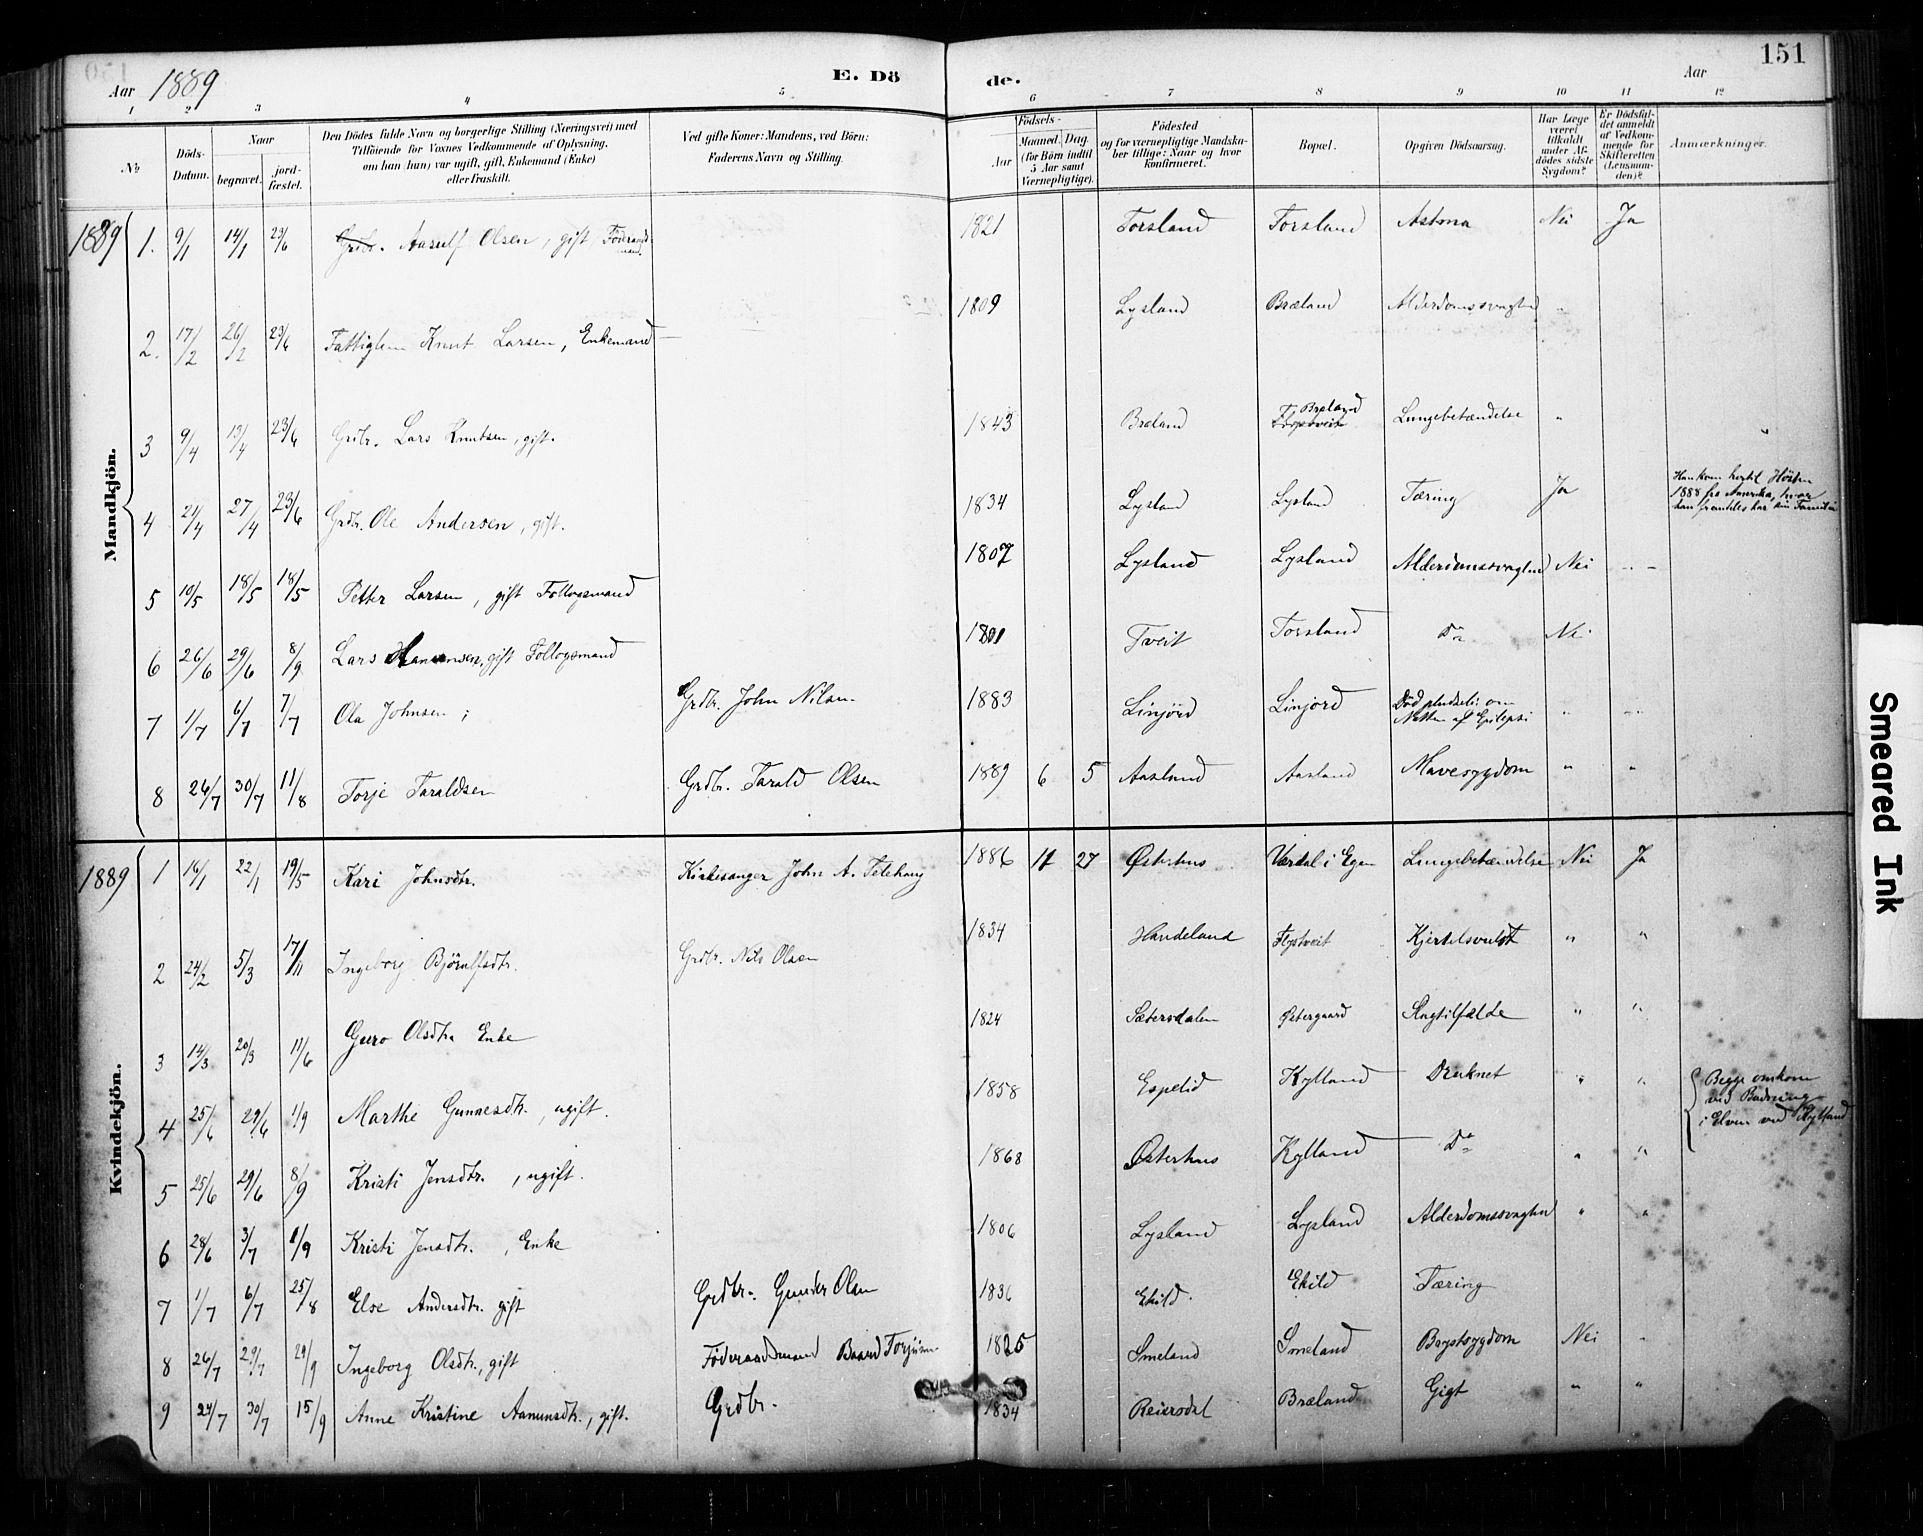 151
Aar 1889 E. Dö de. Aar
1 2 3 4 5 6 7 8 9 10 11 12
No Döds-Datum. Naar begravet. jord-fæstet. Den Dödes fulde Navn og borgerlige Stilling (Næringsvei) med Tilföiende for Voxnes Vedkommende af Oplysning, om han (hun) var ugift, gift, Enkemand (Enke) eller fraskilt. Ved gifte Koner: Mandens, ved Börn: Faderens Navn og Stilling. Födsels- Aar Maaned. Dag. (for Börn indtil 5 Aar samt Værnepligtige). Födested og for værnepligtige Mandskaber tillige: Naar og hvor konfirmeret. Bopæl. Opgiven Dödsaarsag. Har Læge været tilkaldt under Afdödes sidste Sygdom? Er Dödsfaldet anmeldt af Vedkommende for Skifteretten (Lensmanden)? Anmærkninger.
Mandkjön.
1889 1. 9/1 14/1 23/6 Grdbr. Aasulf Olsen, gift, Föderaadsmand. 1821 Torsland Torsland Astma Nei Ja
2. 17/2 26/2 23/6 Fattiglem Knut Larsen, Enkemand — 1809 Lysland Bræland Alderdomssvaghed "
3 9/4 13/4 23/6 Grdbr. Lars Knutsen, gift. 1843 Bræland Bræland Lungebetændelse "
4 21/4 27/4 23/6 Grdbr. Ole Andersen, gift. 1834 Lysland Lysland Tæring Ja Han kom hertil Høsten
1888 fra Amerika, hvor
han fremdeles har sin Familie
5 10/5 18/5 18/5 Petter Larsen, gift Follogsmand 1807 Lysland Lysland Alderdomssvaghed Nei
6 26/6 29/6 8/9 Lars Hansen, gift Follogsmand 1801 Tveit Torsland Do Nei
7 1/7 6/7 7/7 Ola Johnsen; Grdbr. John Nilsen 1883 Linjörd Linjord Död pludseli om
Natten af Epilepsi "
8 26/7 30/7 11/8 Torje Taraldsen Grdbr. Tarald Olsen 1889 6 5 Aasland Aasland Mavesygdom " "
Kvindekjön.
1889 1 16/1 22/1 19/5 Kari Johnsdtr. Kirkesanger John A. Telehaug 1886 11 27 Østerhus Værdal i Egen Lungebetændelse Nei Ja
2 24/2 5/3 17/11 Ingeborg Bjørulfsdtr. Grdbr. Nils Olsen 1834 Handeland Flystveit Kjertelsvulst " "
3 14/3 20/3 11/6 Guro Olsdtr. Enke 1824 Sætersdalen Østergaard Slagtilfælde " "
4 25/6 29/6 1/9 Marthe Gunnesdtr., ugift. 1858 Espelid Kylland Druknet " " Begge omkom
ved Badning
i Elven ved Kylland
5 25/6 29/6 8/9 Kristi Jensdtr., ugift. 1868 Østerhus Kylland Do " "
6 28/6 3/7 1/9 Kristi Jensdtr., Enke 1806 Lysland Lysland Alderdomssvaghed " "
7 1/7 6/7 25/8 Else Andersdtr. gift Grdbr. Gunder Olsen 1836 Ekild. Ekild Tæring
8 26/7 29/7 29/9 Ingeborg Olsdtr., gift Föderaadsmand Baard 1825 Smeland Smeland Brystsygdom Nei "
9 24/7 30/7 15/9 Anne Kristine Aamunsdtr., gift. Grdbr. 1834 Reiersdal Bræland Gigt " "
Smeared Ink